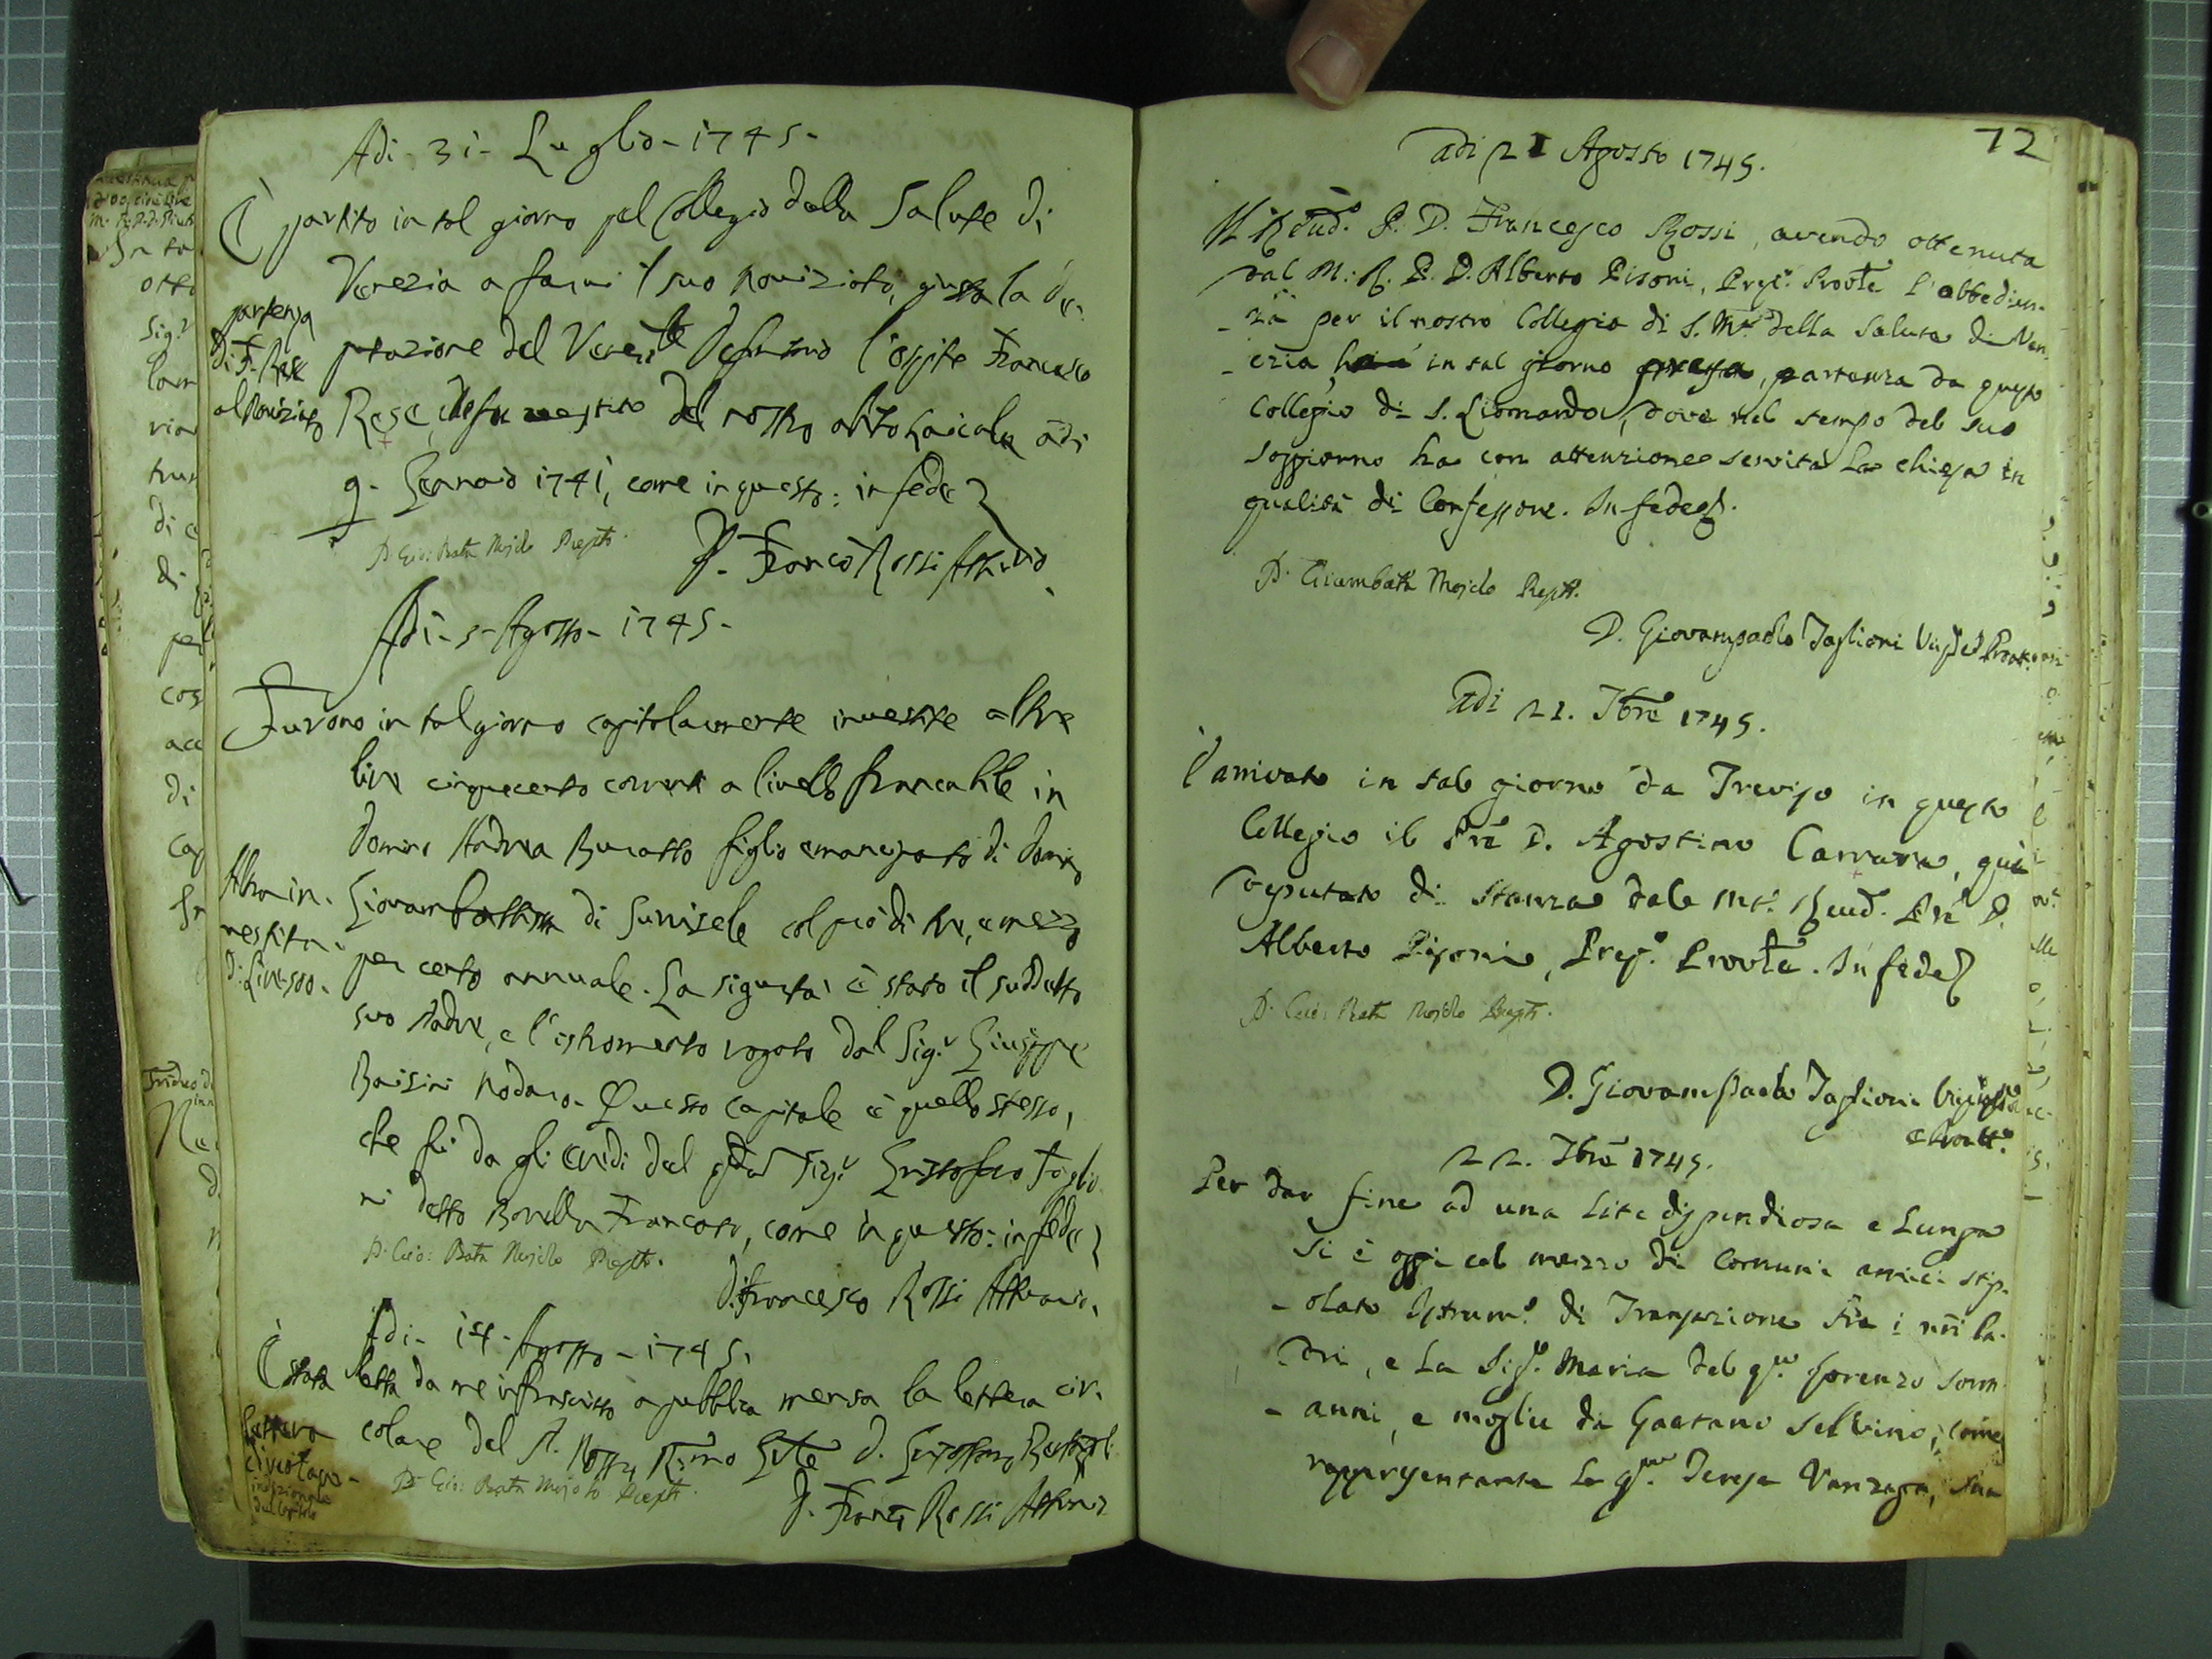 Adi - 31 - Luglio - 1745 -
È partito in tal giorno pel Collegio della Salute di
Venezia a farui il suo Nouiziato, giusta la de-
putazione del Vener.le Definit.o l'ospite Francesco
Rese, che fu uestito del nostro abito Laicale adi
9 - Genaio 1741, come in questo: in fede
partenza
di F. Rese
al Nouiziato
D. Gio: Batta Prepto.
D. Franco Rossi Attuario
Adi - 5 - Agosto - 1745 -
Furono in tal giorno capitolarmente inuestite altre
lire cinquecento correnti a liuello francabile in
Domino Andrea Bucatto figlio emancipato di Domino
Giovambattista di col prò di tre, e mezzo
per cento annuale. La sigurtà è stato il suddetto
suo Padre, e l'istromento rogato dal Sig.r Giuseppe
Nodaro. Questo capitale è quello stesso,
che fù da gli eredi del qdam Sig.r Cristoforo Taglio
ni detto Francato, come in questo: in fede
Altra in-
uestita
di Lire 500.
D. Gio: Batta Prepto.
D. Francesco Rossi Attuario,
Adi - 14 - Agosto - 1745,
È stata letta da me infrascritto a pubblica mensa la lettera cir-
colare del P. Nostro R.mo Gnle D. Cristoforo
lettera
circolare
D. Gio: Batta Prepto.
D. Franco Rossi Attuario
72
Adi 21 Agosto 1745.
Il Rdud.o P. D. Francesco Rossi, avendo ottenuta
dal M: R. P. D. Alberto Pisoni, Prep.o Provle l'obbedien-
- za per il nostro Collegio di S. Ma della Salute di Ven-
- ezia, in tal giorno presa, partenza da questo
Collegio di S. Lionardo, dove nel tempo del suo
soggiorno ha con attenzione servita la chiesa in
qualità di Confessore. In fede
D. Giambatta Prepto.
D. Giovampaolo Taglioni
Adi 21. 7bre 1745.
È arrivato in tal giorno da Treviso in questo
Collegio il Pre D. Agostino Carrara, quì
deputato di stanza dal Mt.o Reud. Pre D.
Alberto Pisoni, Prep.o Provle. In fede
D. Gio: Batta Prepto.
D. Giovampaolo Taglioni
22. 7bre 1745.
Per dar fine ad una lite dispendiosa e lunga
si è oggi col mezzo di comuni amici stip-
- olato Istrum.o di Transazione fra i nri Pa-
dri, e la Sig.a Maria del q.m Lorenzo Sorm-
- anni, e moglie di Gaetano Selvino, come
rappresentante la q.m Teresa Vanzaga, sua